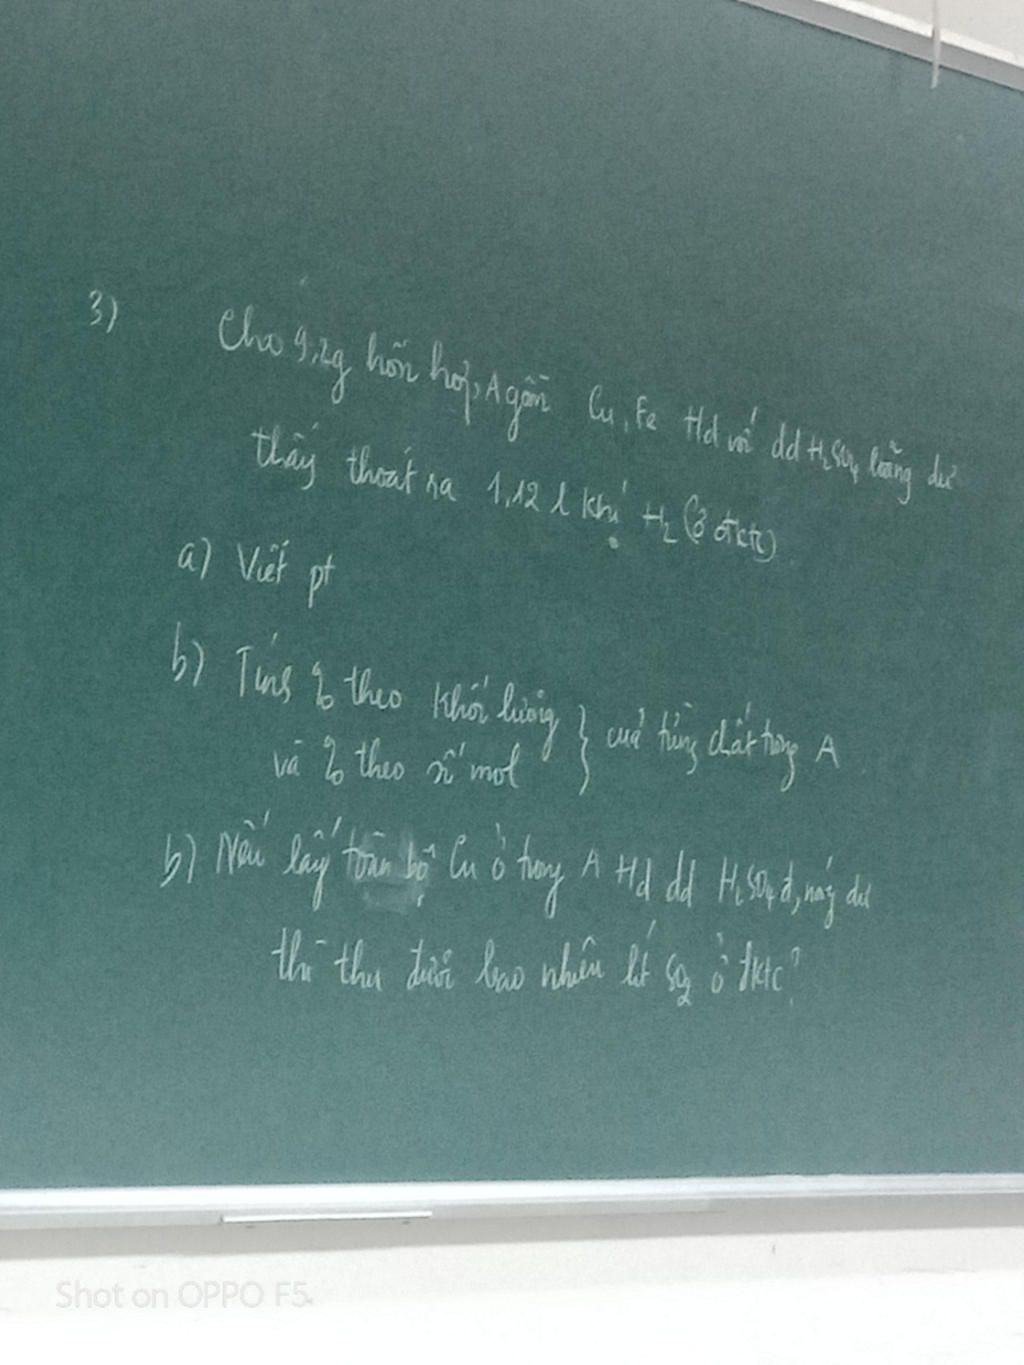 3) Cho 9,2g hỗn hợp A gồm Cu, Fe Td với dd H₂SO₄ loãng dư
thấy thoát ra 1,12 l khí H₂ (ở đktc)
a) Viết pt
b) Tính % theo khối lượng } của từng chất trong A
và % theo số mol
b) Nếu lấy toàn bộ Cu ở trong A Td dd H₂SO₄ đ, nóng dư
thì thu được bao nhiêu lít SO₂ ở đktc?
Shot on OPPO F5